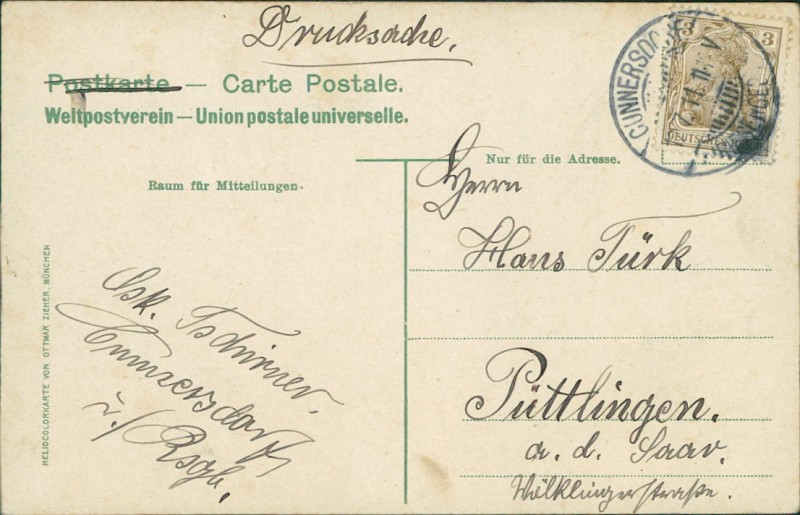 Drucksache.
Postkarte — Carte Postale.
Weltpostverein — Union postale universelle.
CUNNERSDORF
3 3
DEUTSCHES
Nur für die Adresse.
Raum für Mitteilungen.
Herrn
Hans Türk
Püttlingen.
a. d. Saar.
Völklingerstraße.
Osk. Tschirner.
Cunnersdorf
i./Rsgb.
HELIOCOLORKARTE VON OTTMAR ZIEHER, MÜNCHEN